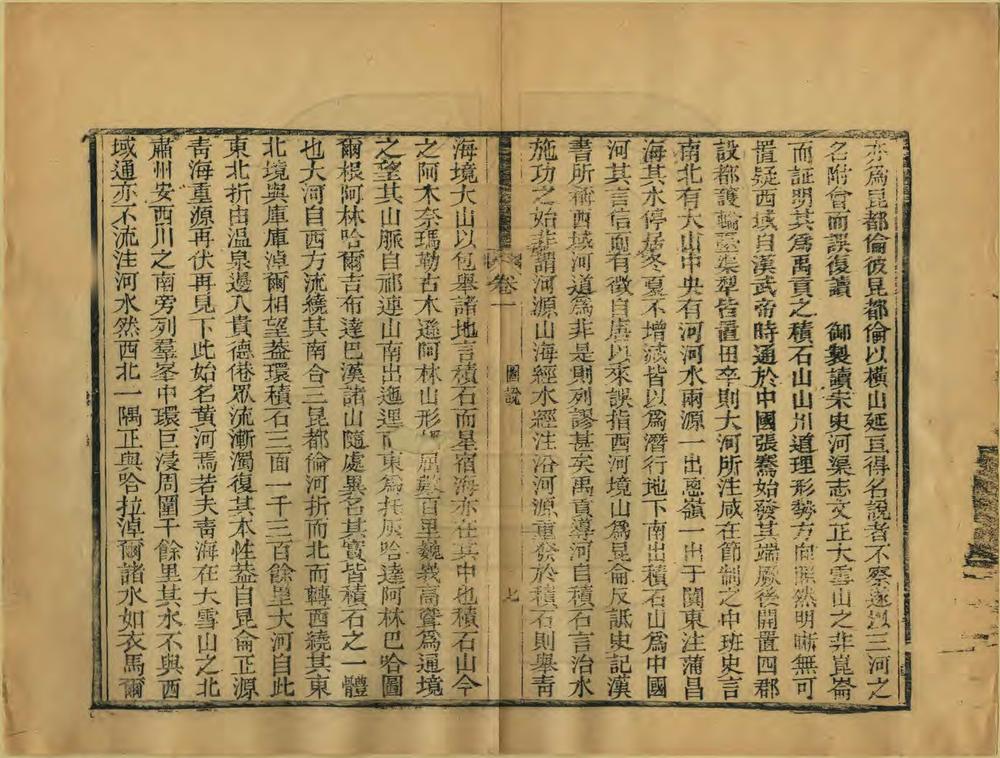 亦為昆都倫彼昆都倫以橫山延亘得名說者不察遂以三河之
名附會而誤復讀　御製讀宋史河渠志文正大雪山之非崑崙
而証明其為禹貢之積石山山川道理形勢方向瞭然明晰無可
置疑西域自漢武帝時通於中國張騫始發其端厥後開置四郡
設都護輪臺渠犂皆置田卒則大河所注咸在節制之中班史言
南北有大山中央有河河水兩源一出蔥嶺一出于闐東注蒲昌
海其水停居冬夏不增減皆以為潛行地下南出積石山為中國
河其言信而有徵自唐以來誤指西河境山為昆侖反詆史記漢
書所稱西域河道為非是則列謬甚矣禹貢導河自積石言治水
施功之始非謂河源山海經水經注沿河源重發於積石則舉青
卷一
圖說
七
海境大山以包舉諸地言積石而星宿海亦在其中也積石山今
之阿木奈瑪勒古木遜阿林山形 屈數百里巍峩高聳為通境
之望其山脈自祁連山南出迤邐而東為托灰哈達阿林巴哈圖
爾根阿林哈爾吉布達巴漢諸山隨處異名其實皆積石之一體
也大河自西方流繞其南合三昆都倫河折而北而轉西繞其東
北境與庫庫淖爾相望葢環積石三面一千三百餘里大河自此
東北折由溫泉邊入貴德衆流漸濁復其本性葢自昆侖正源
青海重源再伏再見下此始名黃河焉若夫青海在大雪山之北
肅州安西川之南旁列羣峯中環巨浸周圍千餘里其水不與西
域通亦不流注河水然西北一隅正與哈拉淖爾諸水如衣馬爾